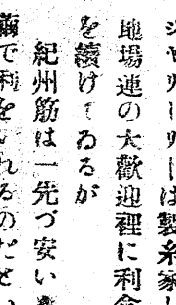 は製糸家
地場連の大歡迎裡に利食
を續けてゐるが
紀州筋は一先づ安い
で利を　れるのだと